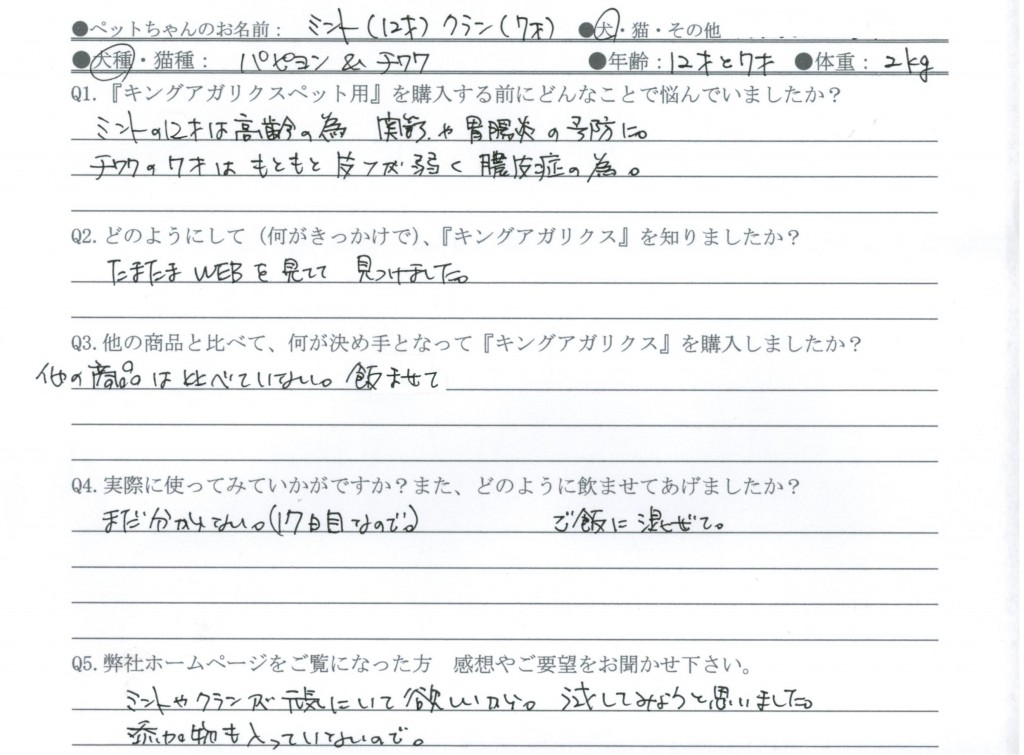 ●ペットちゃんのお名前： ミント(12才) クラン(7才) ●犬・猫・その他
●犬種・猫種： パピヨン & チワワ ●年齢：12才と7才 ●体重：2kg
Q1.『キングアガリクスペット用』を購入する前にどんなことで悩んでいましたか？
ミントの12才は高齢の為 関節や胃腸炎の予防に。
チワワの7才はもともと皮フが弱く膿皮症の為。
Q2.どのようにして（何がきっかけで）、『キングアガリクス』を知りましたか？
たまたまWEBを見てて 見つけました。
Q3.他の商品と比べて、何が決め手となって『キングアガリクス』を購入しましたか？
他の商品は比べていない。飲ませて
Q4.実際に使ってみていかがですか？また、どのように飲ませてあげましたか？
まだ分からない。(17日目なので。) ご飯に混ぜて。
Q5.弊社ホームページをご覧になった方 感想やご要望をお聞かせ下さい。
ミントやクランが元気にいて欲しいから。試してみようと思いました。
添加物も入っていないので。